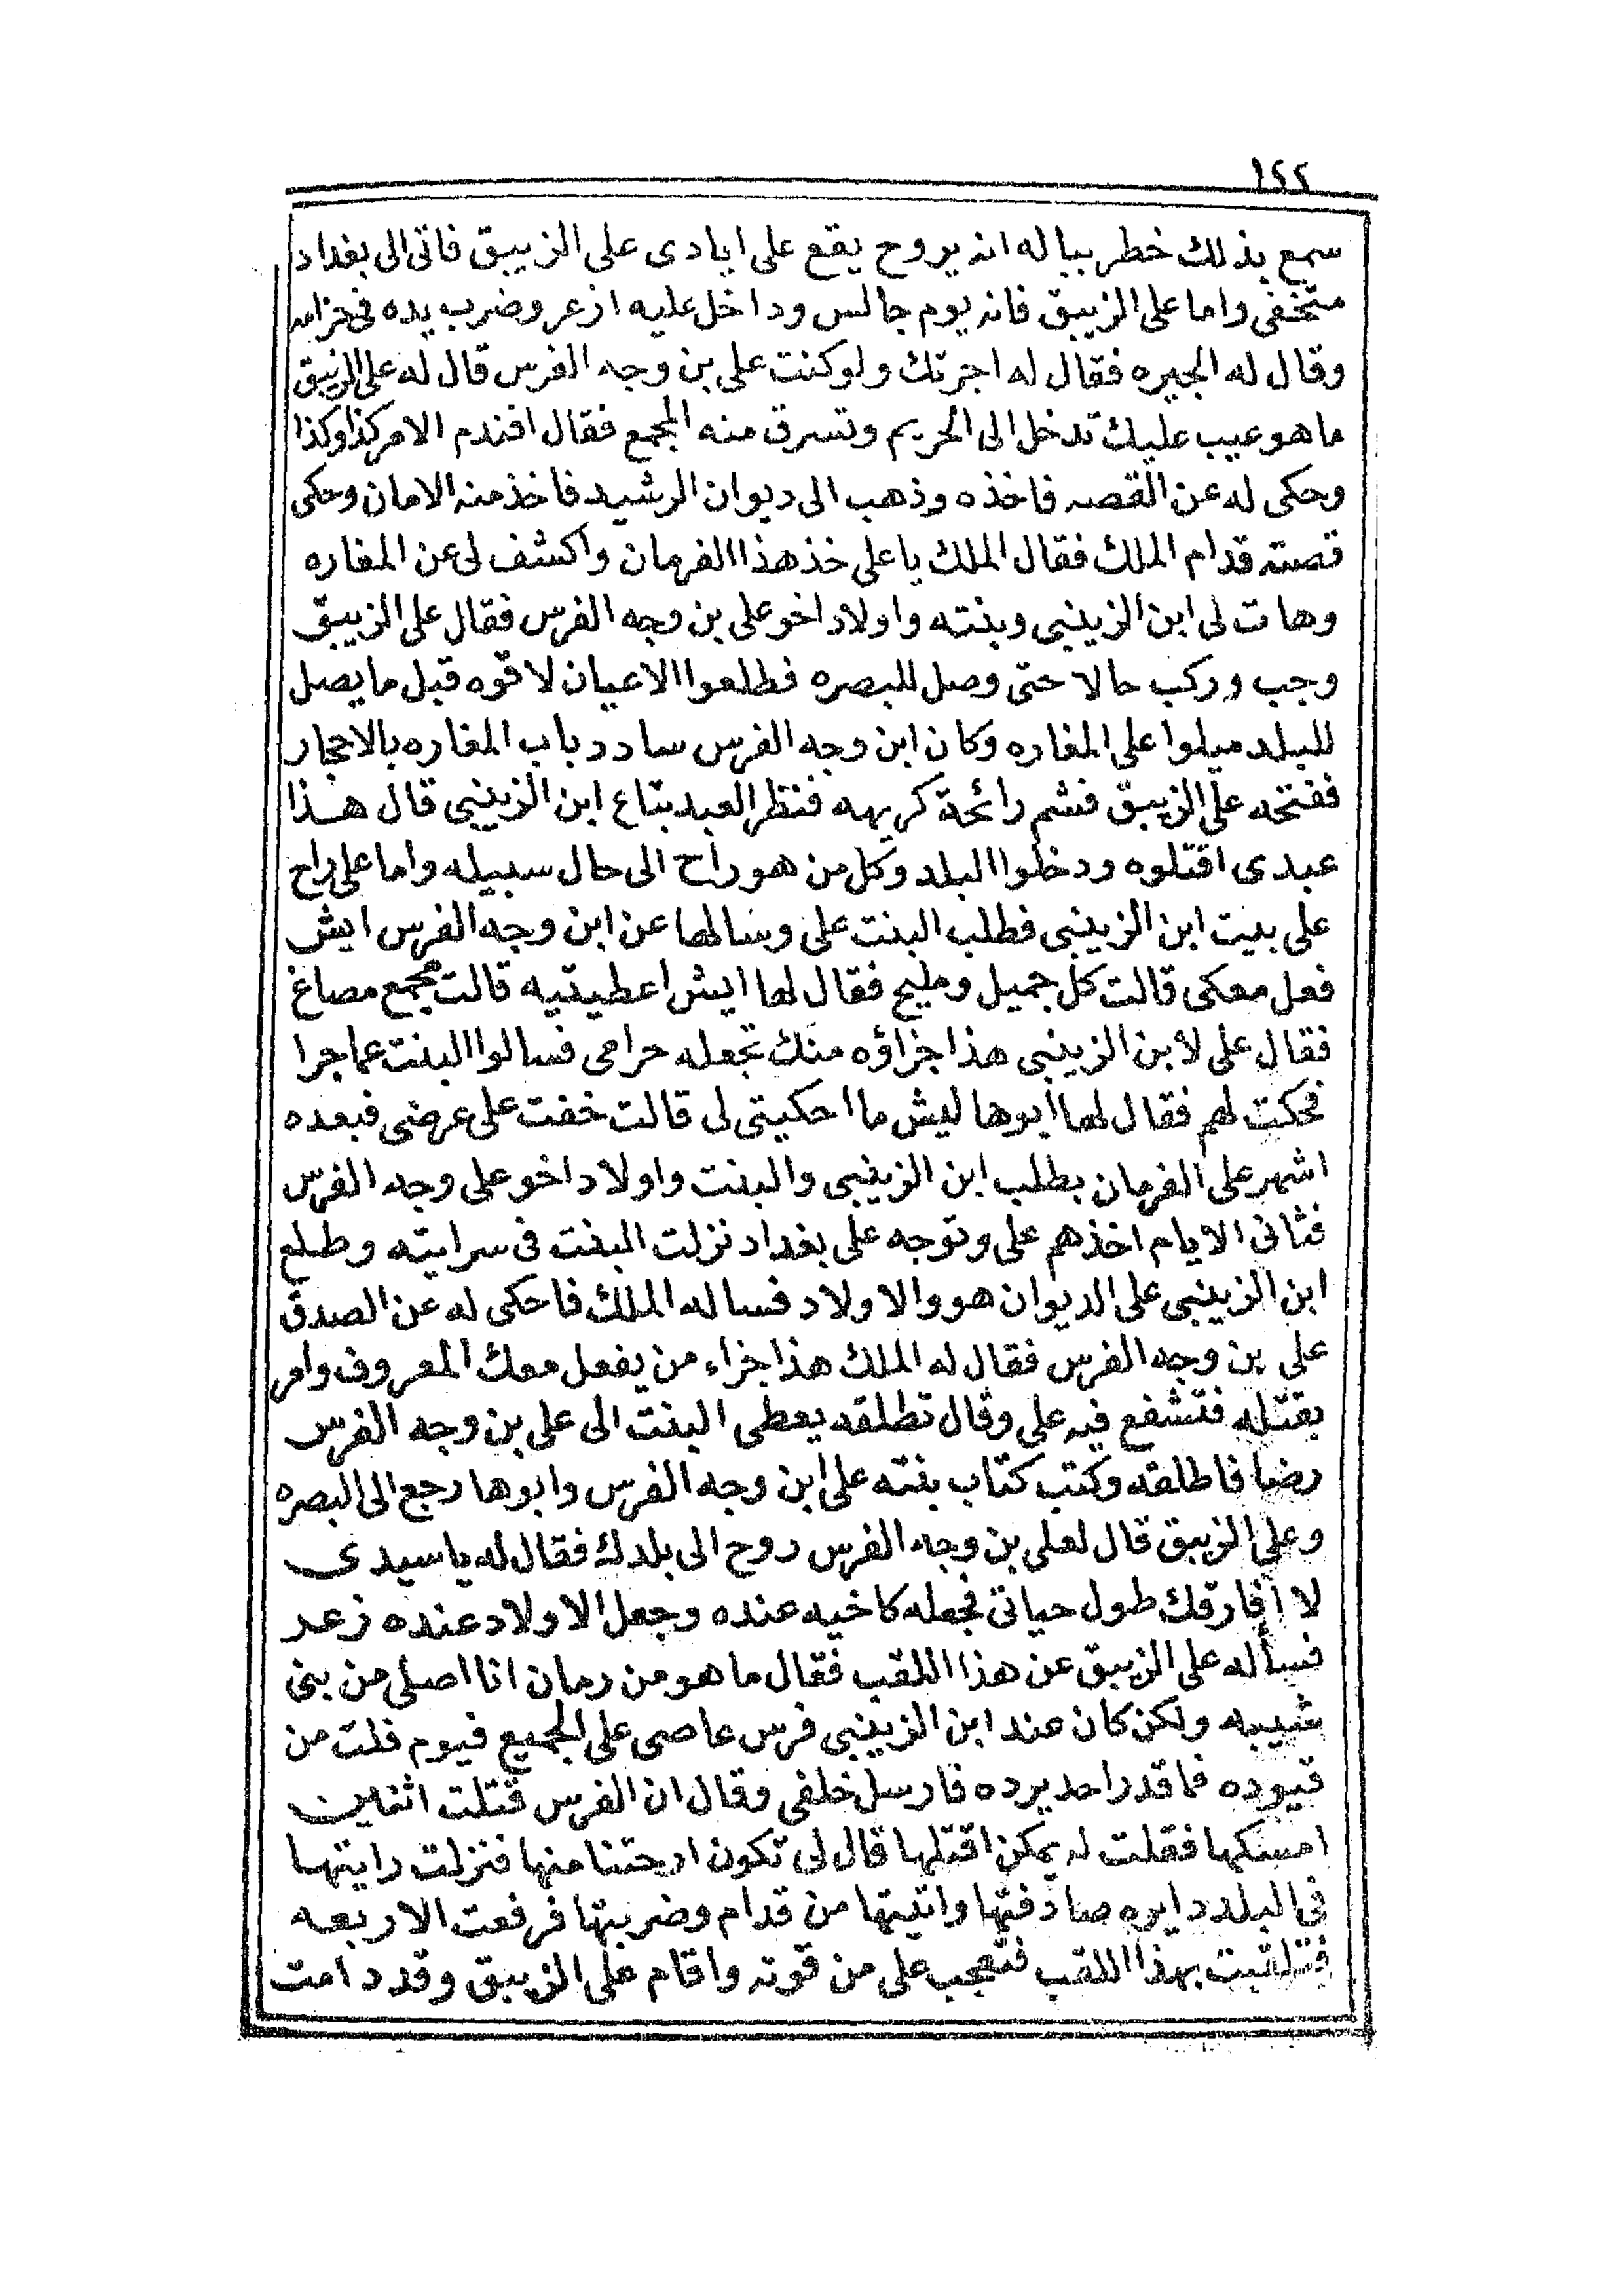 ١٢٢
سمع بذلك خطر بباله انه يروح يقع على ايادى على الزيبق فاتى الى بغداد
متخفى واما على الزيبق فانه يوم جالس وداخل عليه ازعر وضرب يده فى حزامه
وقال له الجيره فقال له اجرتك ولو كنت على بن وجه الفرس قال له على الزيبق
ما هو عيب عليك تدخل الى الحريم وتسرق منه المجمع فقال افندم الامر كذا وكذا
وحكى له عن القصه فاخذه وذهب الى ديوان الرشيد فاخذ منه الامان وحكى
قصته قدام الملك فقال الملك يا على خذ هذا الفرمان واكشف لى عن المغاره
وهات لى ابن الزينبى وبنته واولاد اخو على بن وجه الفرس فقال على الزيبق
وجب وركب حالا حتى وصل للبصره فطلعوا الاعيان لاقوه قبل ما يصل
للبلد ميلوا على المغاره وكان ابن وجه الفرس سادد باب المغاره بالاحجار
ففتحه على الزيبق فشم رائحة كريهه فنظر العبد بتاع ابن الزينبى قال هذا
عبدى اقتلوه ودخلوا البلد وكل من هو راح الى حال سبيله واما على راح
على بيت ابن الزينبى فطلب البنت على وسالها عن ابن وجه الفرس ايش
فعل معكى قالت كل جميل ومليح فقال لها ايش اعطيتيه قالت مجمع مصاغ
فقال على لابن الزينبى هذا جزاؤه منك تجعله حرامى فسالوا البنت عما جرا
فحكت لهم فقال لها ابوها ليش ما احكيتى لى قالت خفت على عرضى فبعده
اشهر على الفرمان بطلب ابن الزينبى والبنت واولاد اخو على وجه الفرس
فثانى الايام اخذهم على وتوجه على بغداد نزلت البنت فى سرايته وطلع
ابن الزينبى على الديوان هو والاولاد فساله الملك فاحكى له عن الصدق
على بن وجه الفرس فقال له الملك هذا جزاء من يفعل معك المعروف وامر
بقتله فتشفع فيه على وقال تطلقه يعطى البنت الى على بن وجه الفرس
رضا فاطلقه وكتب كتاب بنته على ابن وجه الفرس وابوها رجع الى البصره
وعلى الزيبق قال لعلى بن وجه الفرس روح الى بلدك فقال له يا سيدى
لا افارقك طول حياتى فجعله كاخيه عنده وجعل الاولاد عنده زعر
فسأله على الزيبق عن هذا اللقب فقال ما هو من رمان انا اصلى من بنى
شيبه ولكن كان عند ابن الزينبى فرس عاصى على الجميع فيوم فلت من
قيوده فما قدر احد يرده فارسل خلفى وقال ان الفرس قتلت اثنين
امسكها فقلت له يمكن اقتلها قال لى تكون ارحتنا منها فنزلت رايتها
فى البلد دايره صادفتها واتيتها من قدام وضربتها فرفعت الاربعه
فتلقبت بهذا اللقب فتعجب على من قوته واقام على الزيبق وقد دامت